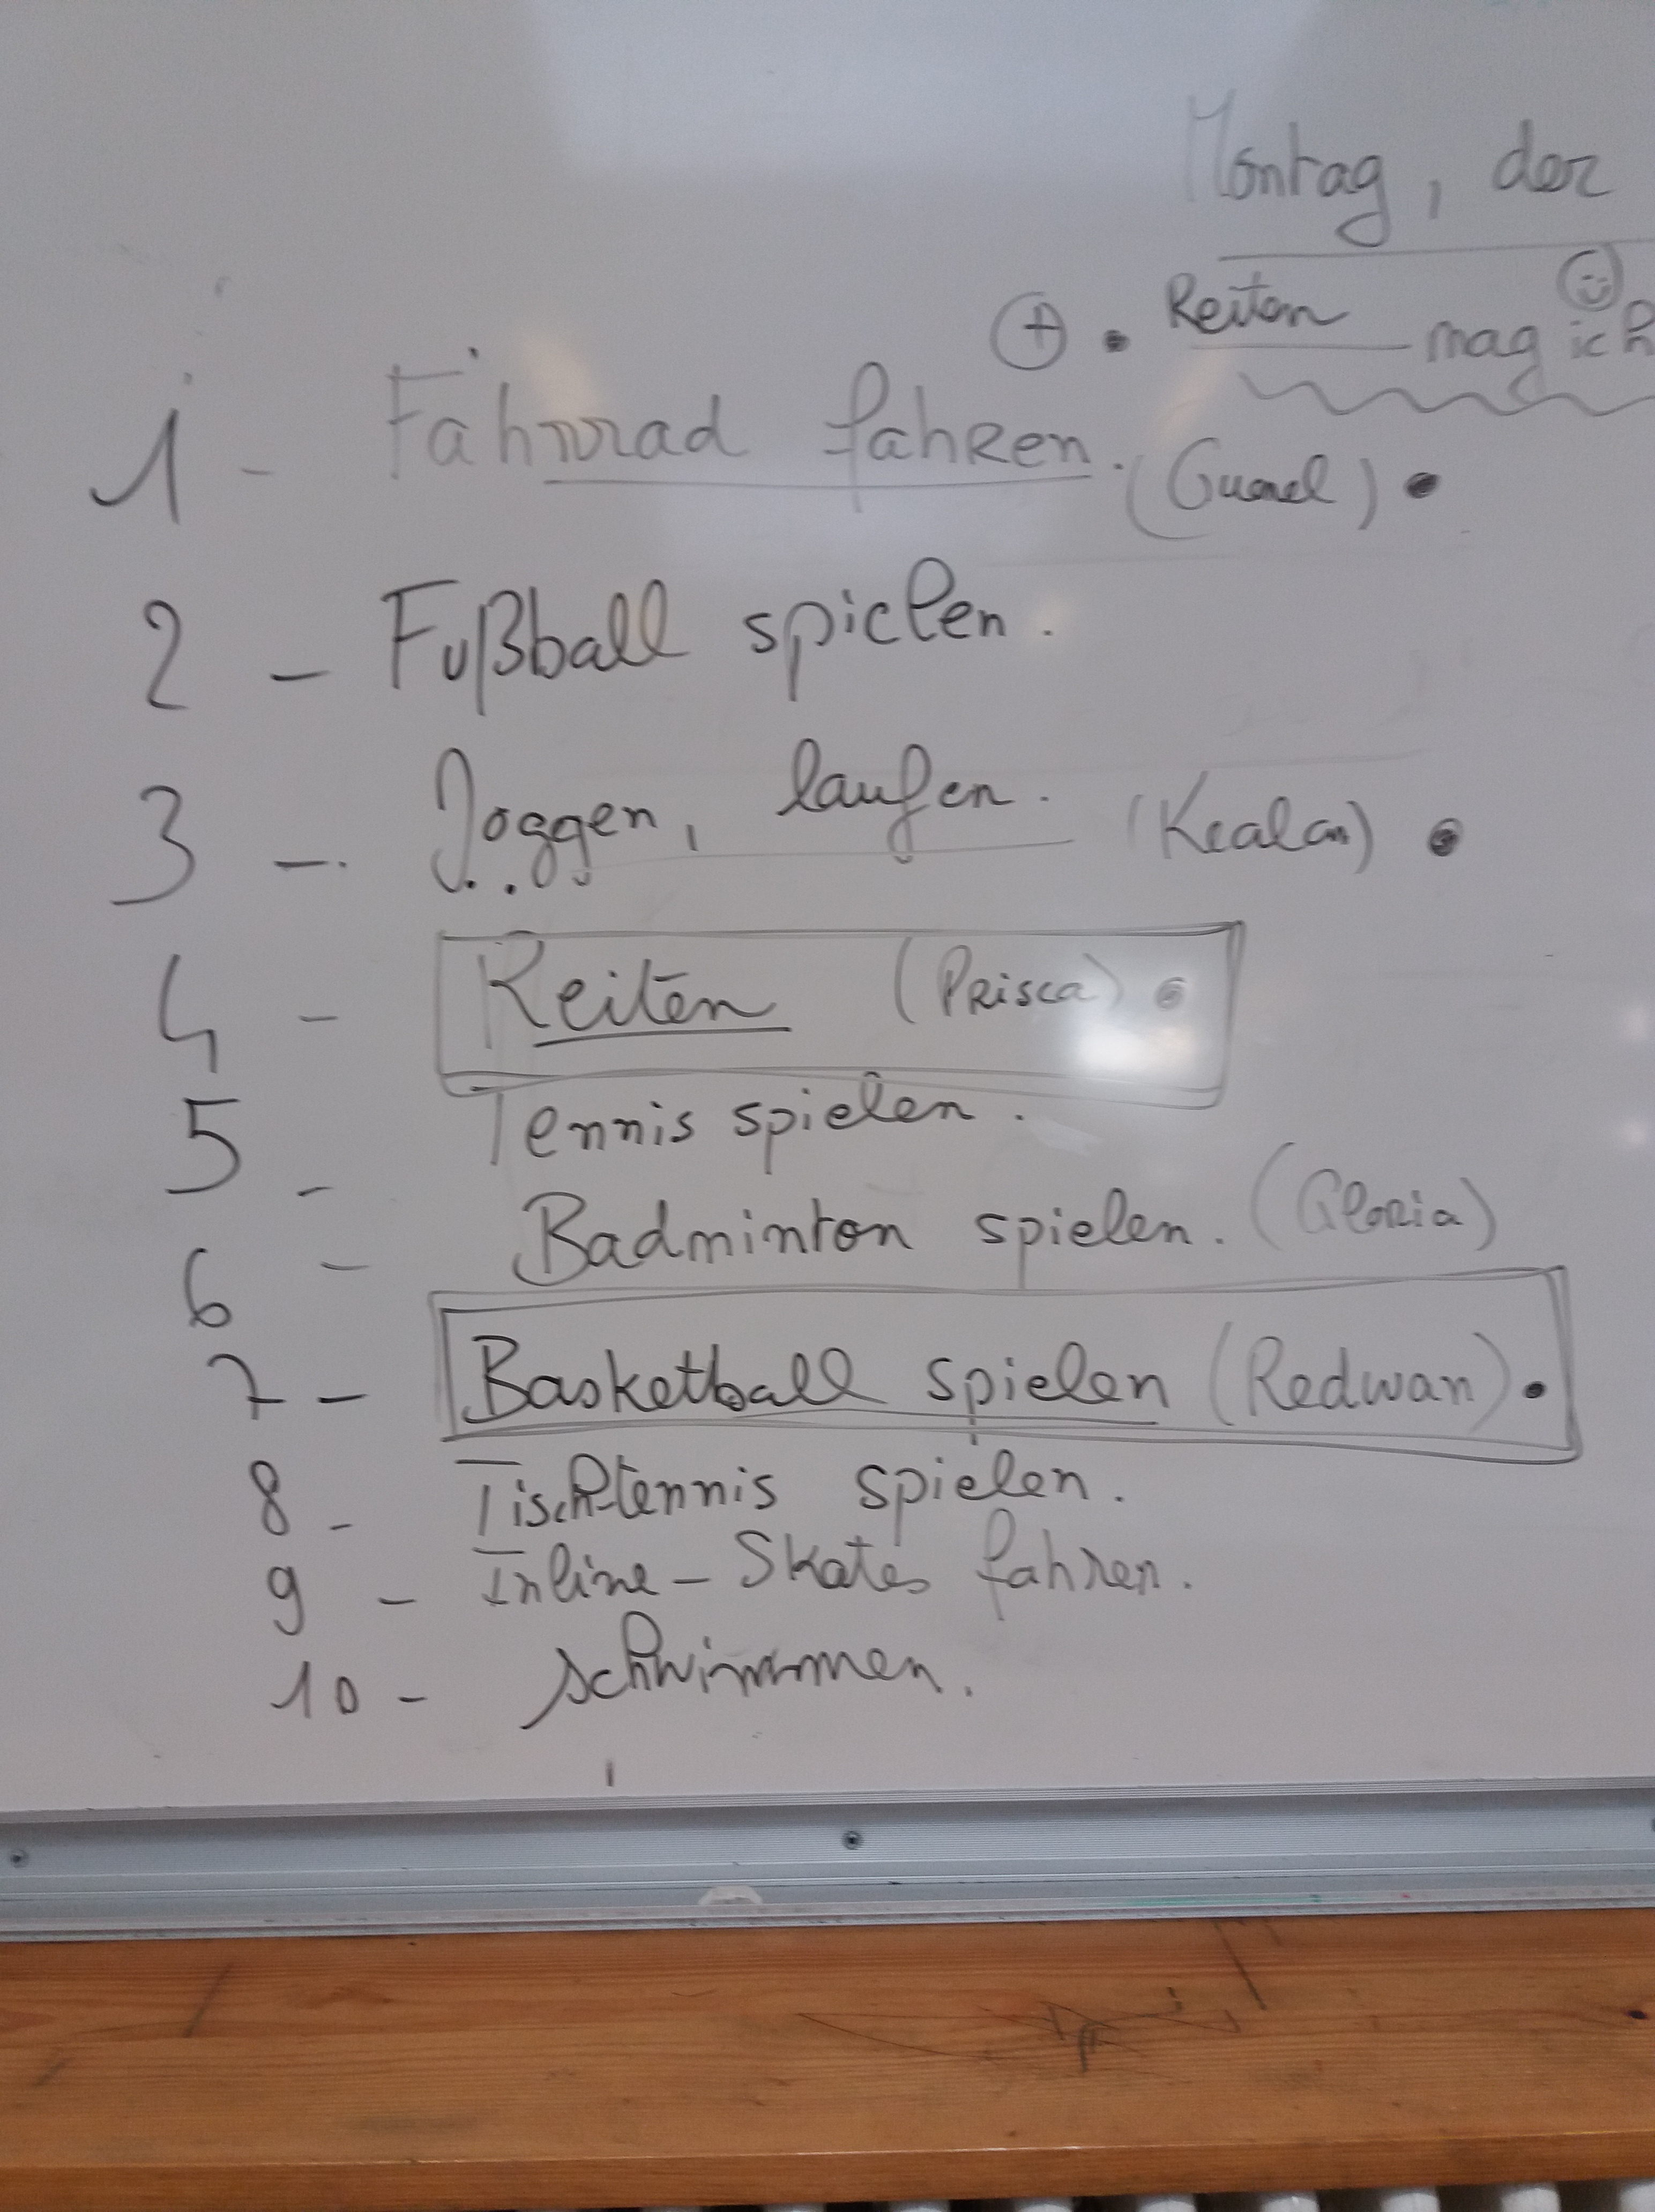 Montag, der
⊕ • Reiten mag ich
1 - Fahrrad fahren. (Gunel) •
2 - Fußball spielen.
3 - Joggen, laufen. (Kealan) •
4 - Reiten (Prisca) •
5 - Tennis spielen.
6 - Badminton spielen. (Gloria)
7 - Basketball spielen (Redwan) •
8 - Tischtennis spielen.
9 - Inline-Skates fahren.
10 - schwimmen.